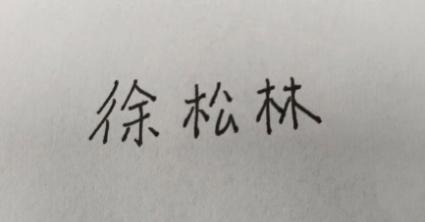 徐松林